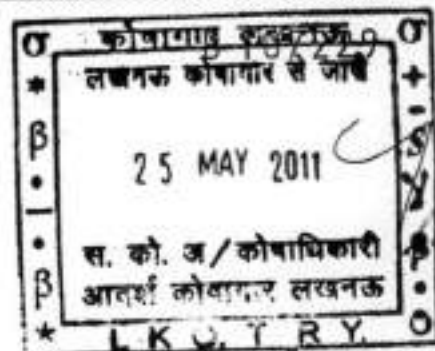 कोषागार
लखनऊ कोषागार से जारी
25 MAY 2011
स. को. अ/कोषाधिकारी
आदर्श कोषागार लखनऊ
L K O. T R Y.